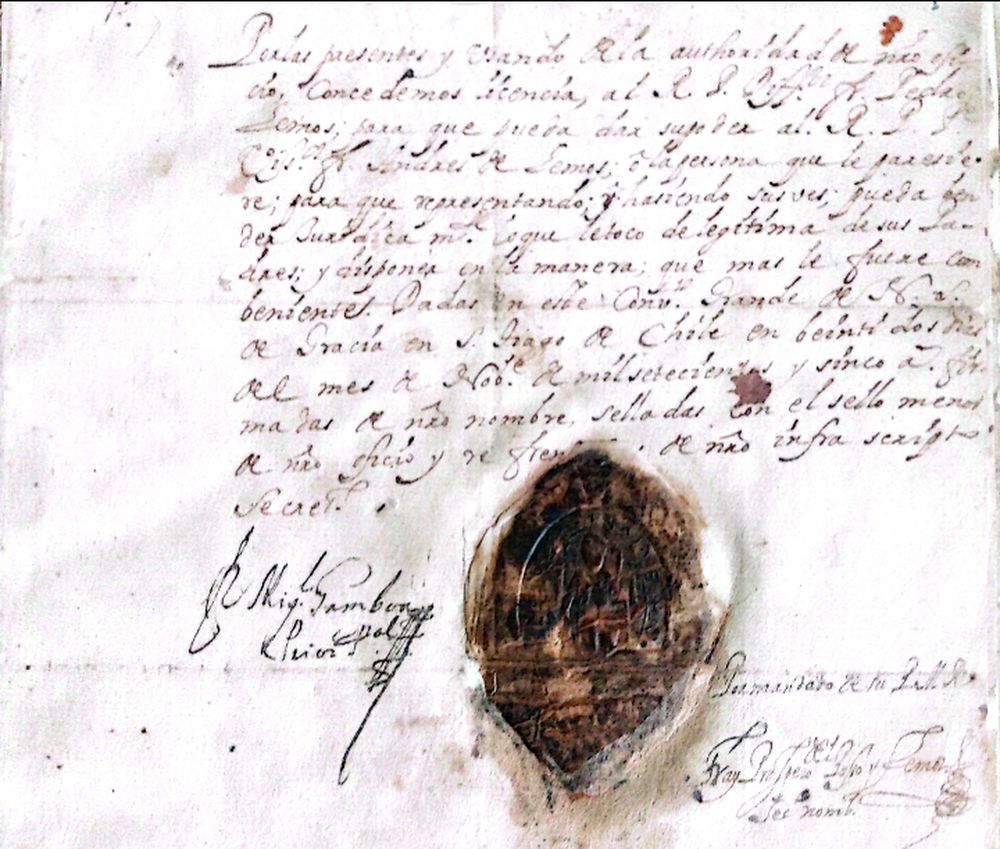 Por las presentes y usando de la authoridad de nr̃o ofi-
cio, Concedemos licencia, al R. P. Diff.ᵒʳ fr.
Lemos; para que pueda dar su poder al. R. P. F.
fr. Andres de Lemos; o la persona que le paresie-
re; para que representando; y hasiendo sus ves; pueda ben
der Juridica m.ᵗᵉ lo que le toco de legitima de sus Pa-
dres; y disponer en la manera; que mas le fuere con
beniente. Dadas en este Conv.ᵗᵒ Grande de N. S.
de Gracia en S. Tiago de Chile en beinti dos dias
del mes de Nob.ᵉ de mil setecientos y sinco a.ˢ fir-
madas de nr̃o nombre, selladas con el sello menor
de nr̃o oficio y de nr̃o infra scripto
Secret.ᵒ
Fr. Mig.ˡ Gamboa
Prior Pro.ᵃˡ
Por mandado de su P. M. R.
Fray Prospero del Posso y Lemos
Sec.ʳⁱᵒ nomb.ᵒ